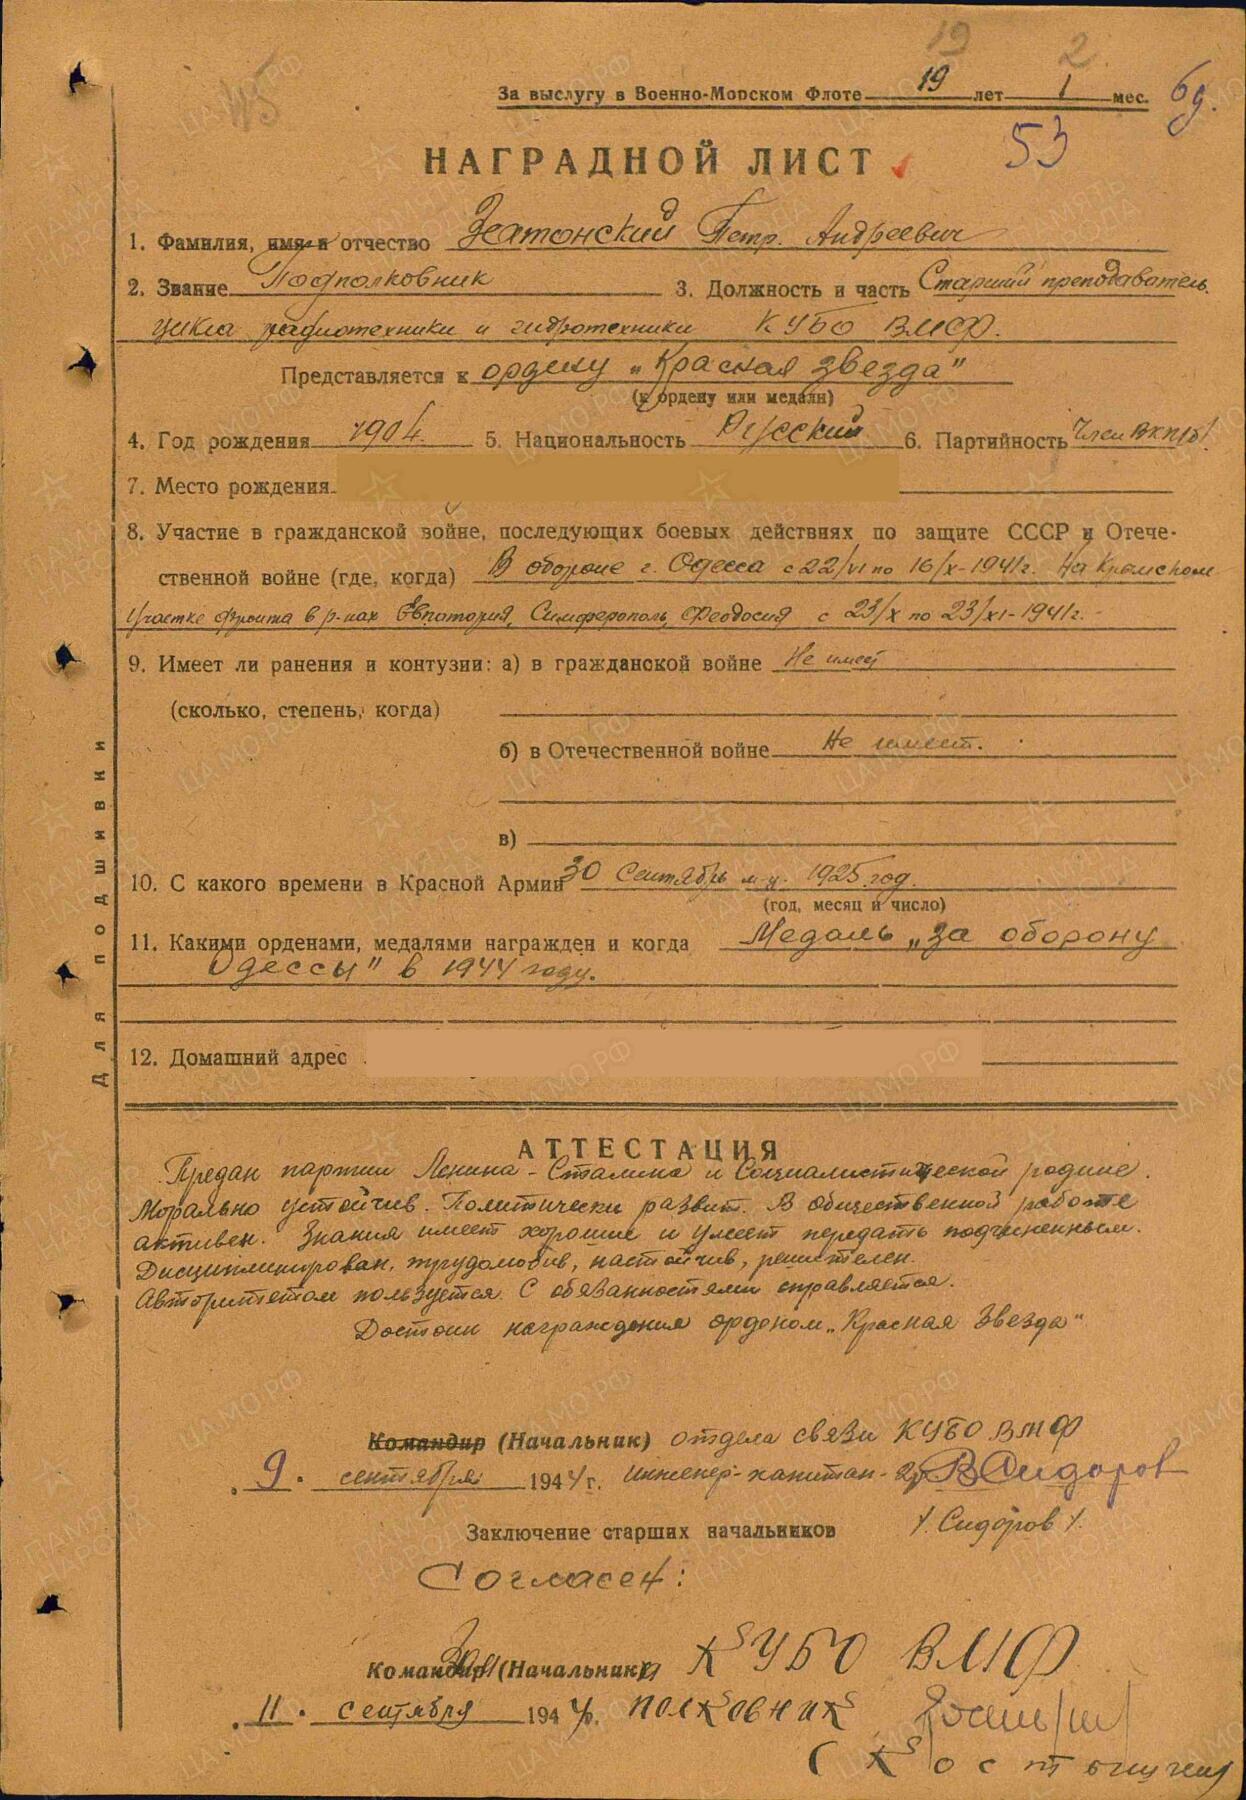 19 2
За выслугу в Военно-Морском Флоте 19 лет 1 мес. 6д.
53
НАГРАДНОЙ ЛИСТ
1. Фамилия, имя и отчество Затонский Петр. Андреевич
2. Звание Подполковник 3. Должность и часть Старший преподаватель
цикла радиотехники и гидротехники КУБО ВМФ.
Представляется к ордену „Красная звезда"
(к ордену или медали)
4. Год рождения 1904. 5. Национальность Русский 6. Партийность Член ВКП(б)
7. Место рождения
8. Участие в гражданской войне, последующих боевых действиях по защите СССР и Отече-
ственной войне (где, когда) В обороне г. Одесса с 22/VI по 16/X-1941г. На Крымском
участке фронта в р-нах Евпатория, Симферополь, Феодосия с 23/X по 23/XI-1941г.
9. Имеет ли ранения и контузии: а) в гражданской войне Не имеет
(сколько, степень, когда)
б) в Отечественной войне Не имеет.
в)
10. С какого времени в Красной Армии 30 Сентябрь м-ц. 1925 год.
(год, месяц и число)
11. Какими орденами, медалями награжден и когда Медаль „за оборону
Одессы" в 1944 году.
12. Домашний адрес
Для подшивки
АТТЕСТАЦИЯ
Предан партии Ленина-Сталина и Социалистической родине.
Морально устойчив. Политически развит. В общественной работе
активен. Знания имеет хорошие и умеет передать подчиненным.
Дисциплинирован, трудолюбив, настойчив, решителен.
Авторитетом пользуется. С обязанностями справляется.
Достоин награждения орденом „Красная Звезда"
Командир (Начальник) отдела связи КУБО ВМФ
9. сентября 1944г. инженер-капитан-2р ВСидоров
Заключение старших начальников /.Сидоров/.
Согласен:
Командир (Начальник) КУБО ВМФ
11. сентября 1944г. полковник